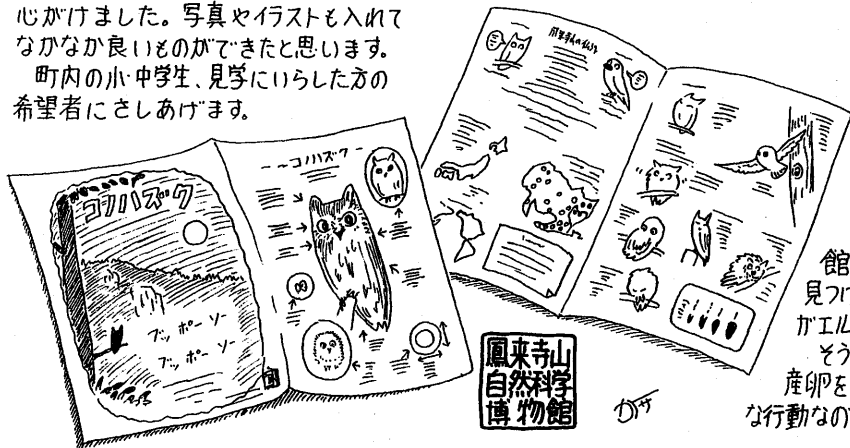 心がけました。写真やイラストも入れて
なかなか良いものができたと思います。
町内の小・中学生、見学にいらした方の
希望者にさしあげます。
コノハズク
ブッ ポー ソー
ブッ ポー ソー
～コノハズク～
鳳来寺山
自然科学
博物館
館
見つけ
ガエル
そう
産卵を
な行動なの